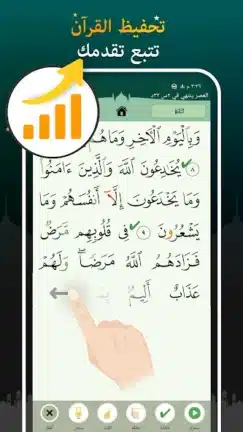 تحفيظ القرآن
تتبع تقدمك
العصر ينتهي في
البقرة
وَبِٱلْيَوْمِ ٱلْـَٔاخِرِ وَمَا هُم
٨ يُخَٰدِعُونَ ٱللَّهَ وَٱلَّذِينَ ءَامَنُوا۟
وَمَا يَخْدَعُونَ إِلَّآ أَنفُسَهُمْ وَمَا
يَشْعُرُونَ ٩ فِى قُلُوبِهِم مَّرَضٌ
فَزَادَهُمُ ٱللَّهُ مَرَضًا ۖ وَلَهُمْ
عَذَابٌ أَلِيمٌۢ بِمَا